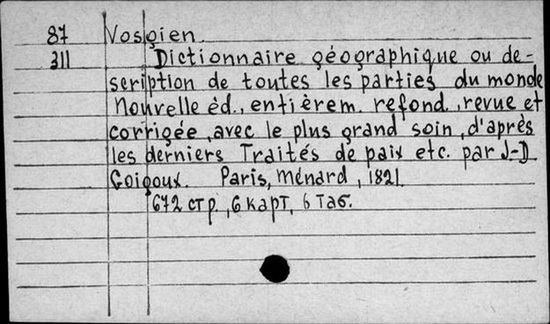 87 Vosgien.
311 Dictionnaire géographique ou de-
scription de toutes les parties du monde
Nouvelle éd., entièrem. refond., revue et
corrigée avec le plus grand soin, d'après
les derniers Traités de paix etc. par J-D.
Goigoux. Paris, Ménard, 1821.
672 стр., 6 карт, 6 таб.